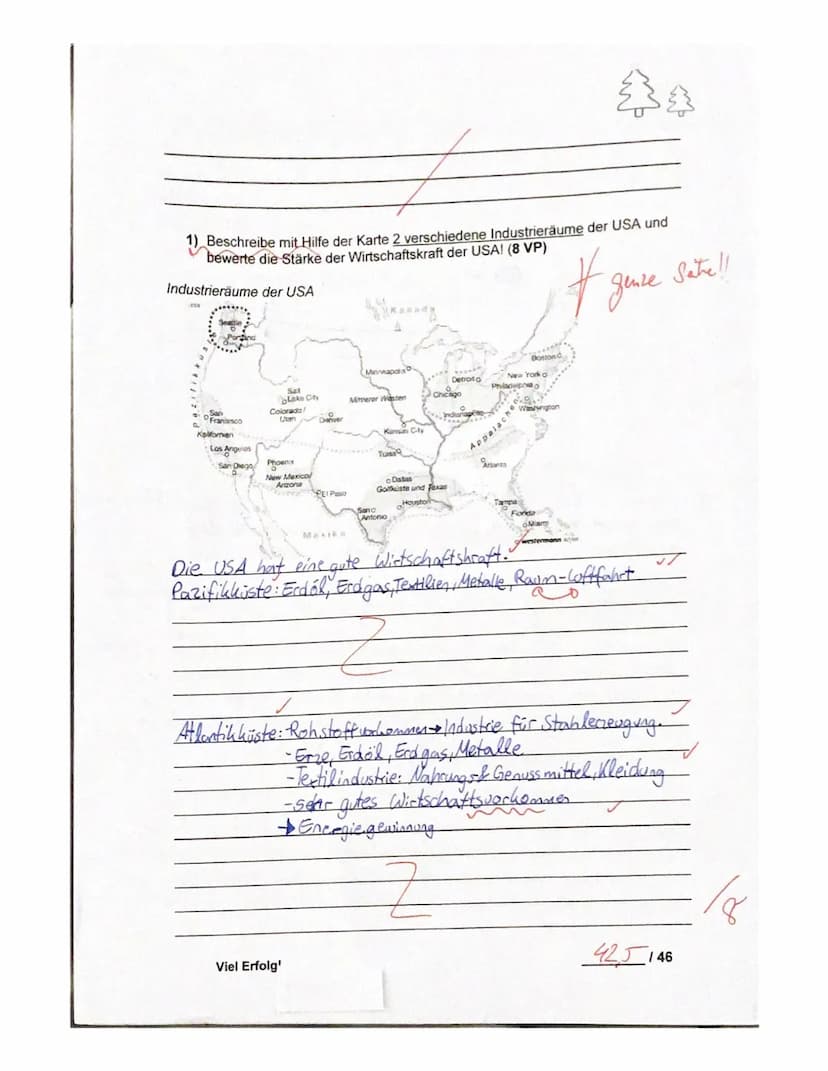 1) Beschreibe mit Hilfe der Karte 2 verschiedene Industrieräume der USA und
bewerte die Stärke der Wirtschaftskraft der USA! (8 VP)
ganze Sätze!!
Industrieräume der USA
Kanada
Seattle
Portland
Pazifikküste
Boston
Minneapolis
Detroit
New York
Philadelphia
Salt
Lake City
Mittlerer Westen
Chicago
Washington
San
Francisco
Colorado/
Utah
Denver
Indianapolis
Kalifornien
Kansas City
Appalachen
Los Angeles
Tulsa
San Diego
Phoenix
Atlanta
New Mexico/
Arizona
Dallas
Golfküste und Texas
El Paso
Houston
San
Antonio
Tampa
Florida
Miami
Mexiko
westermann
Die USA hat eine gute Wirtschaftskraft.
Pazifikküste: Erdöl, Erdgas, Textilien, Metalle, Raum-Luftfahrt
Atlantikküste: Rohstoffvorkommen→Industrie für Stahlerzeugung.
- Erze, Erdöl, Erdgas, Metalle
- Textilindustrie: Nahrungs& Genussmittel, Kleidung
- sehr gutes Wirtschaftsvorkommen
→ Energiegewinnung
/8
Viel Erfolg!
42,5 / 46